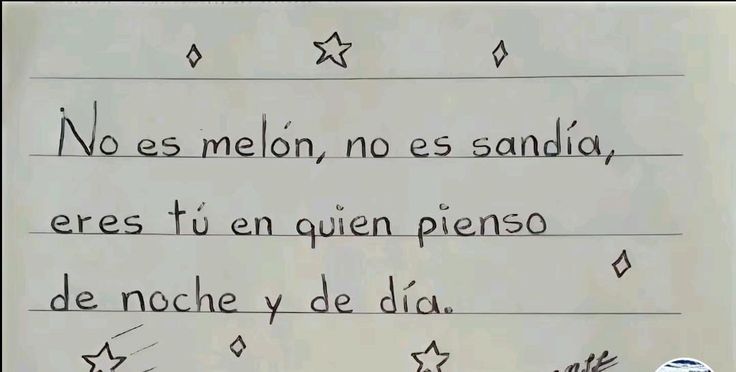 No es melón, no es sandía,
eres tú en quien pienso
de noche y de día.